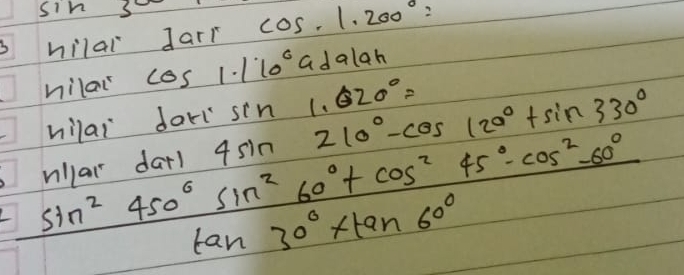 sin 3
nilai dari cos. 1.200°=
nilai cos 1.110° adalah
nilai dari sin 1.620°=
nilai dari 4 sin 210°-cos 120° + sin 330°
sin² 450° sin² 60° + cos² 45°-cos² -60°
tan 30° + tan 60°